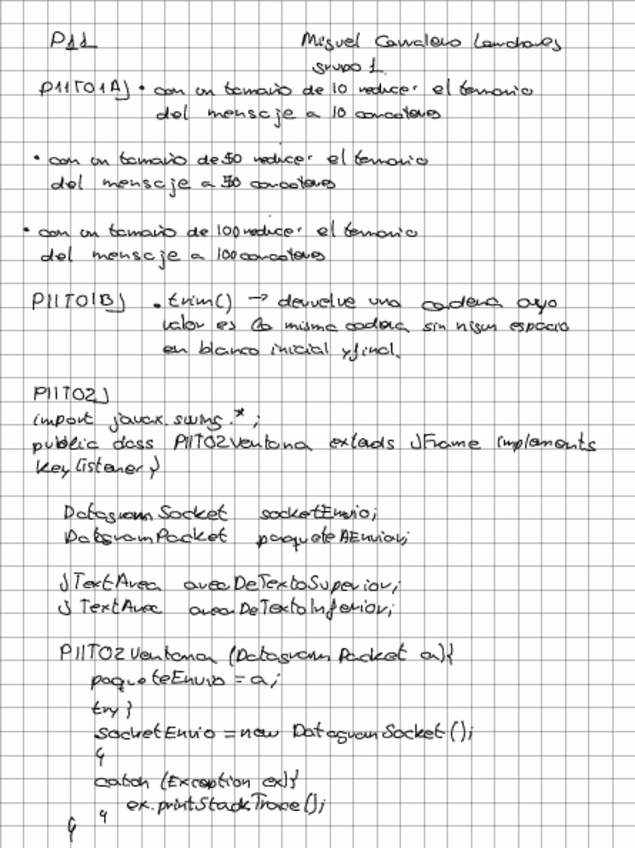 P11 Miguel Carralero Lanchares
grupo 1
P11T01A) • con un tamaño de 10 reduce el tamaño
del mensaje a 10 caracteres
• con un tamaño de 50 reduce el tamaño
del mensaje a 50 caracteres
• con un tamaño de 100 reduce el tamaño
del mensaje a 100 caracteres
P11T01B) . trim() → devuelve una cadena cuyo
valor es la misma cadena sin nigun espacio
en blanco inicial y final.
P11T02)
import javax.swing.*;
public class P11T02Ventana extends JFrame implements
KeyListener }
DatagramSocket socketEnvio;
DatagramPacket paqueteAEnviar;
JTextArea areaDeTextoSuperior;
JTextArea areaDeTextoInferior;
P11T02Ventana (DatagramPacket a){
paqueteEnvio = a;
try }
socketEnvio = new DatagramSocket ();
{
catch (Exception ex)}
ex.printStackTrace();
{
{